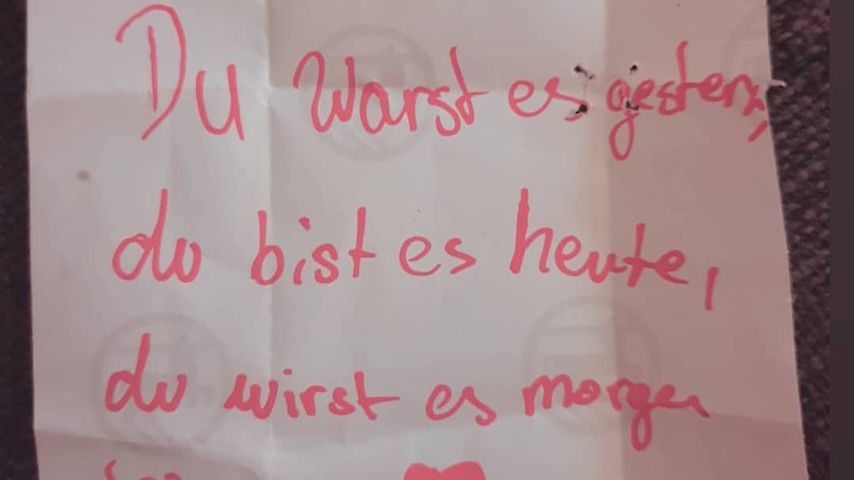 Du warst es gestern,
du bist es heute,
du wirst es morgen